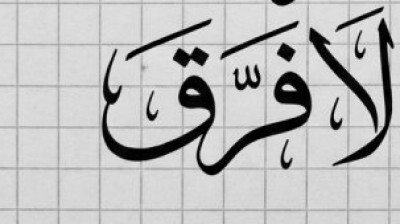 لَا فَرَّقَ